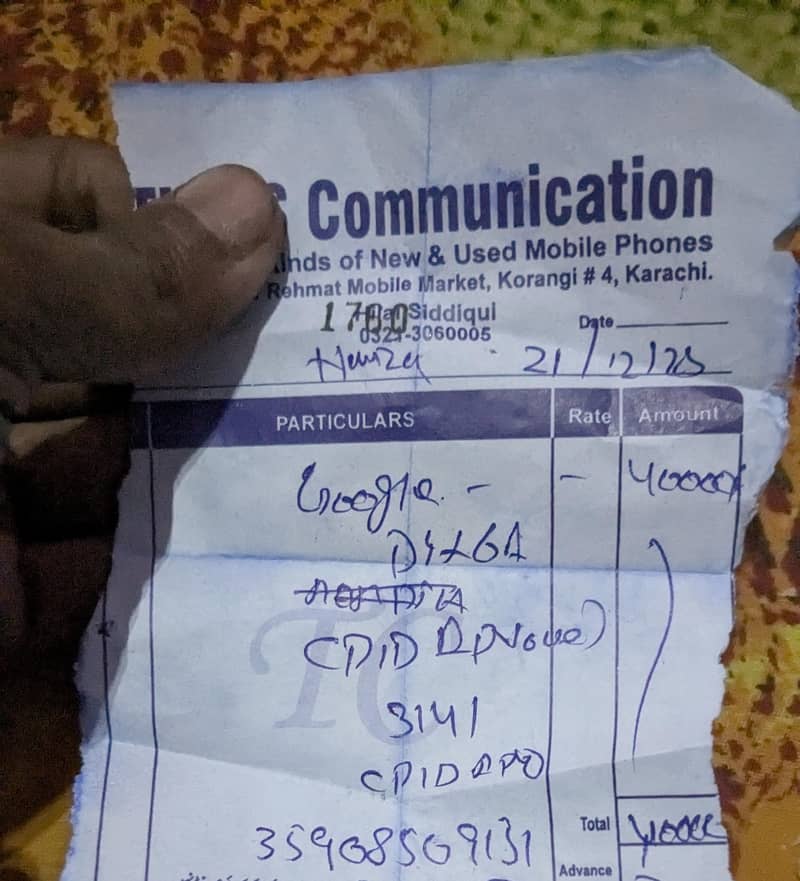 Communication
inds of New & Used Mobile Phones
Rehmat Mobile Market, Korangi # 4, Karachi.
1700
Siddiqui
0321-3060005
Date
Hamza 21/12/25
PARTICULARS Rate Amount
Google - - 40000
CPID Approve)
3141
CPID
35908509131
Total 40000
Advance